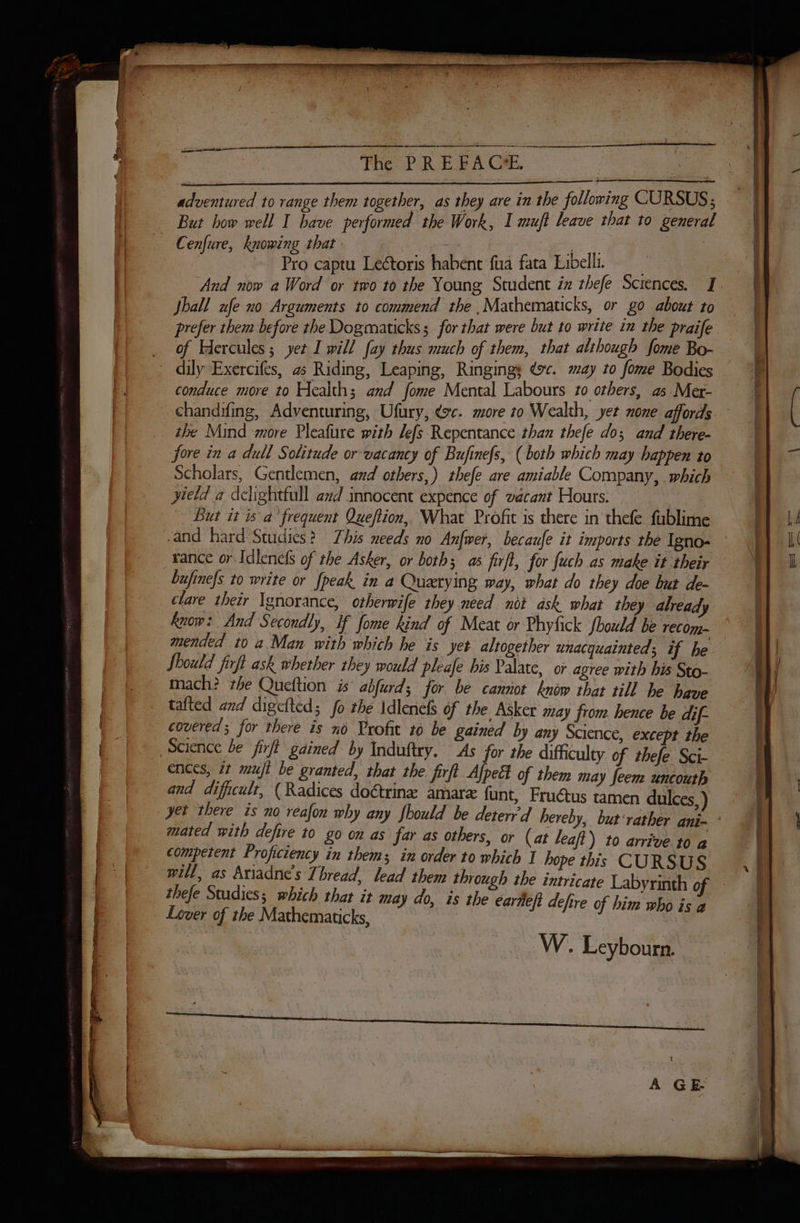 The PREFACE.
adventured to range them together, as they are in the following CURSUS;
But how well I have performed the Work, I muſt leave that to general
Cenſure, knowing that
Pro captu Lectoris habent ſua fata Libelli.
And now a Word or two to the Young Student in theſe Sciences. I
ſhall uſe no Arguments to commend the Mathematicks, or go about to
prefer them before the Dogmaticks; for that were but to write in the praiſe
of Hercules; yet I will ſay thus much of them, that although ſome Bo-
dily Exerciſes, as Riding, Leaping, Ringing, &c. may to ſome Bodies
conduce more to Health; and ſome Mental Labours to others, as Mer-
chandiſing, Adventuring, Uſury, &c. more to Wealth, yet none affords
the Mind more Pleaſure with leſs Repentance than theſe do; and there-
fore in a dull Solitude or vacancy of Buſineſs, (both which may happen to
Scholars, Gentlemen, and others,) theſe are amiable Company, which
yield a delightfull and innocent expence of vacant Hours.
But it is a frequent Queſtion, What Profit is there in theſe ſublime
and hard Studies? This needs no Anſwer, becauſe it imports the Igno-
rance or Idleneſs of the Asker, or both; as firſt, for ſuch as make it their
buſineſs to write or ſpeak in a Quærying way, what do they doe but de-
clare their Ignorance, otherwiſe they need not ask what they already
know: And Secondly, If ſome kind of Meat or Phyſick ſhould be recom-
mended to a Man with which he is yet altogether unacquainted; if he
ſhould firſt ask whether they would pleaſe his Palate, or agree with his Sto-
mach? the Queſtion is abſurd; for he cannot know that till he have
taſted and digeſted; ſo the Idleneſs of the Asker may from hence be diſ-
covered; for there is no Profit to be gained by any Science, except the
Science be firſt gained by Induſtry. As for the difficulty of theſe Sci-
ences, it muſt be granted, that the firſt Aſpect of them may ſeem uncouth
and difficult, (Radices doctrinæ amaræ ſunt, Fructus tamen dulces,)
yet there is no reaſon why any ſhould be deterr'd hereby, but rather ani-
mated with deſire to go on as far as others, or (at leaſt) to arrive to a
competent Proficiency in them; in order to which I hope this CURSUS
will, as Ariadne's Thread, lead them through the intricate Labyrinth of
theſe Studies; which that it may do, is the earneſt deſire of him who is a
Lover of the Mathematicks,
W. Leybourn.
A GE-